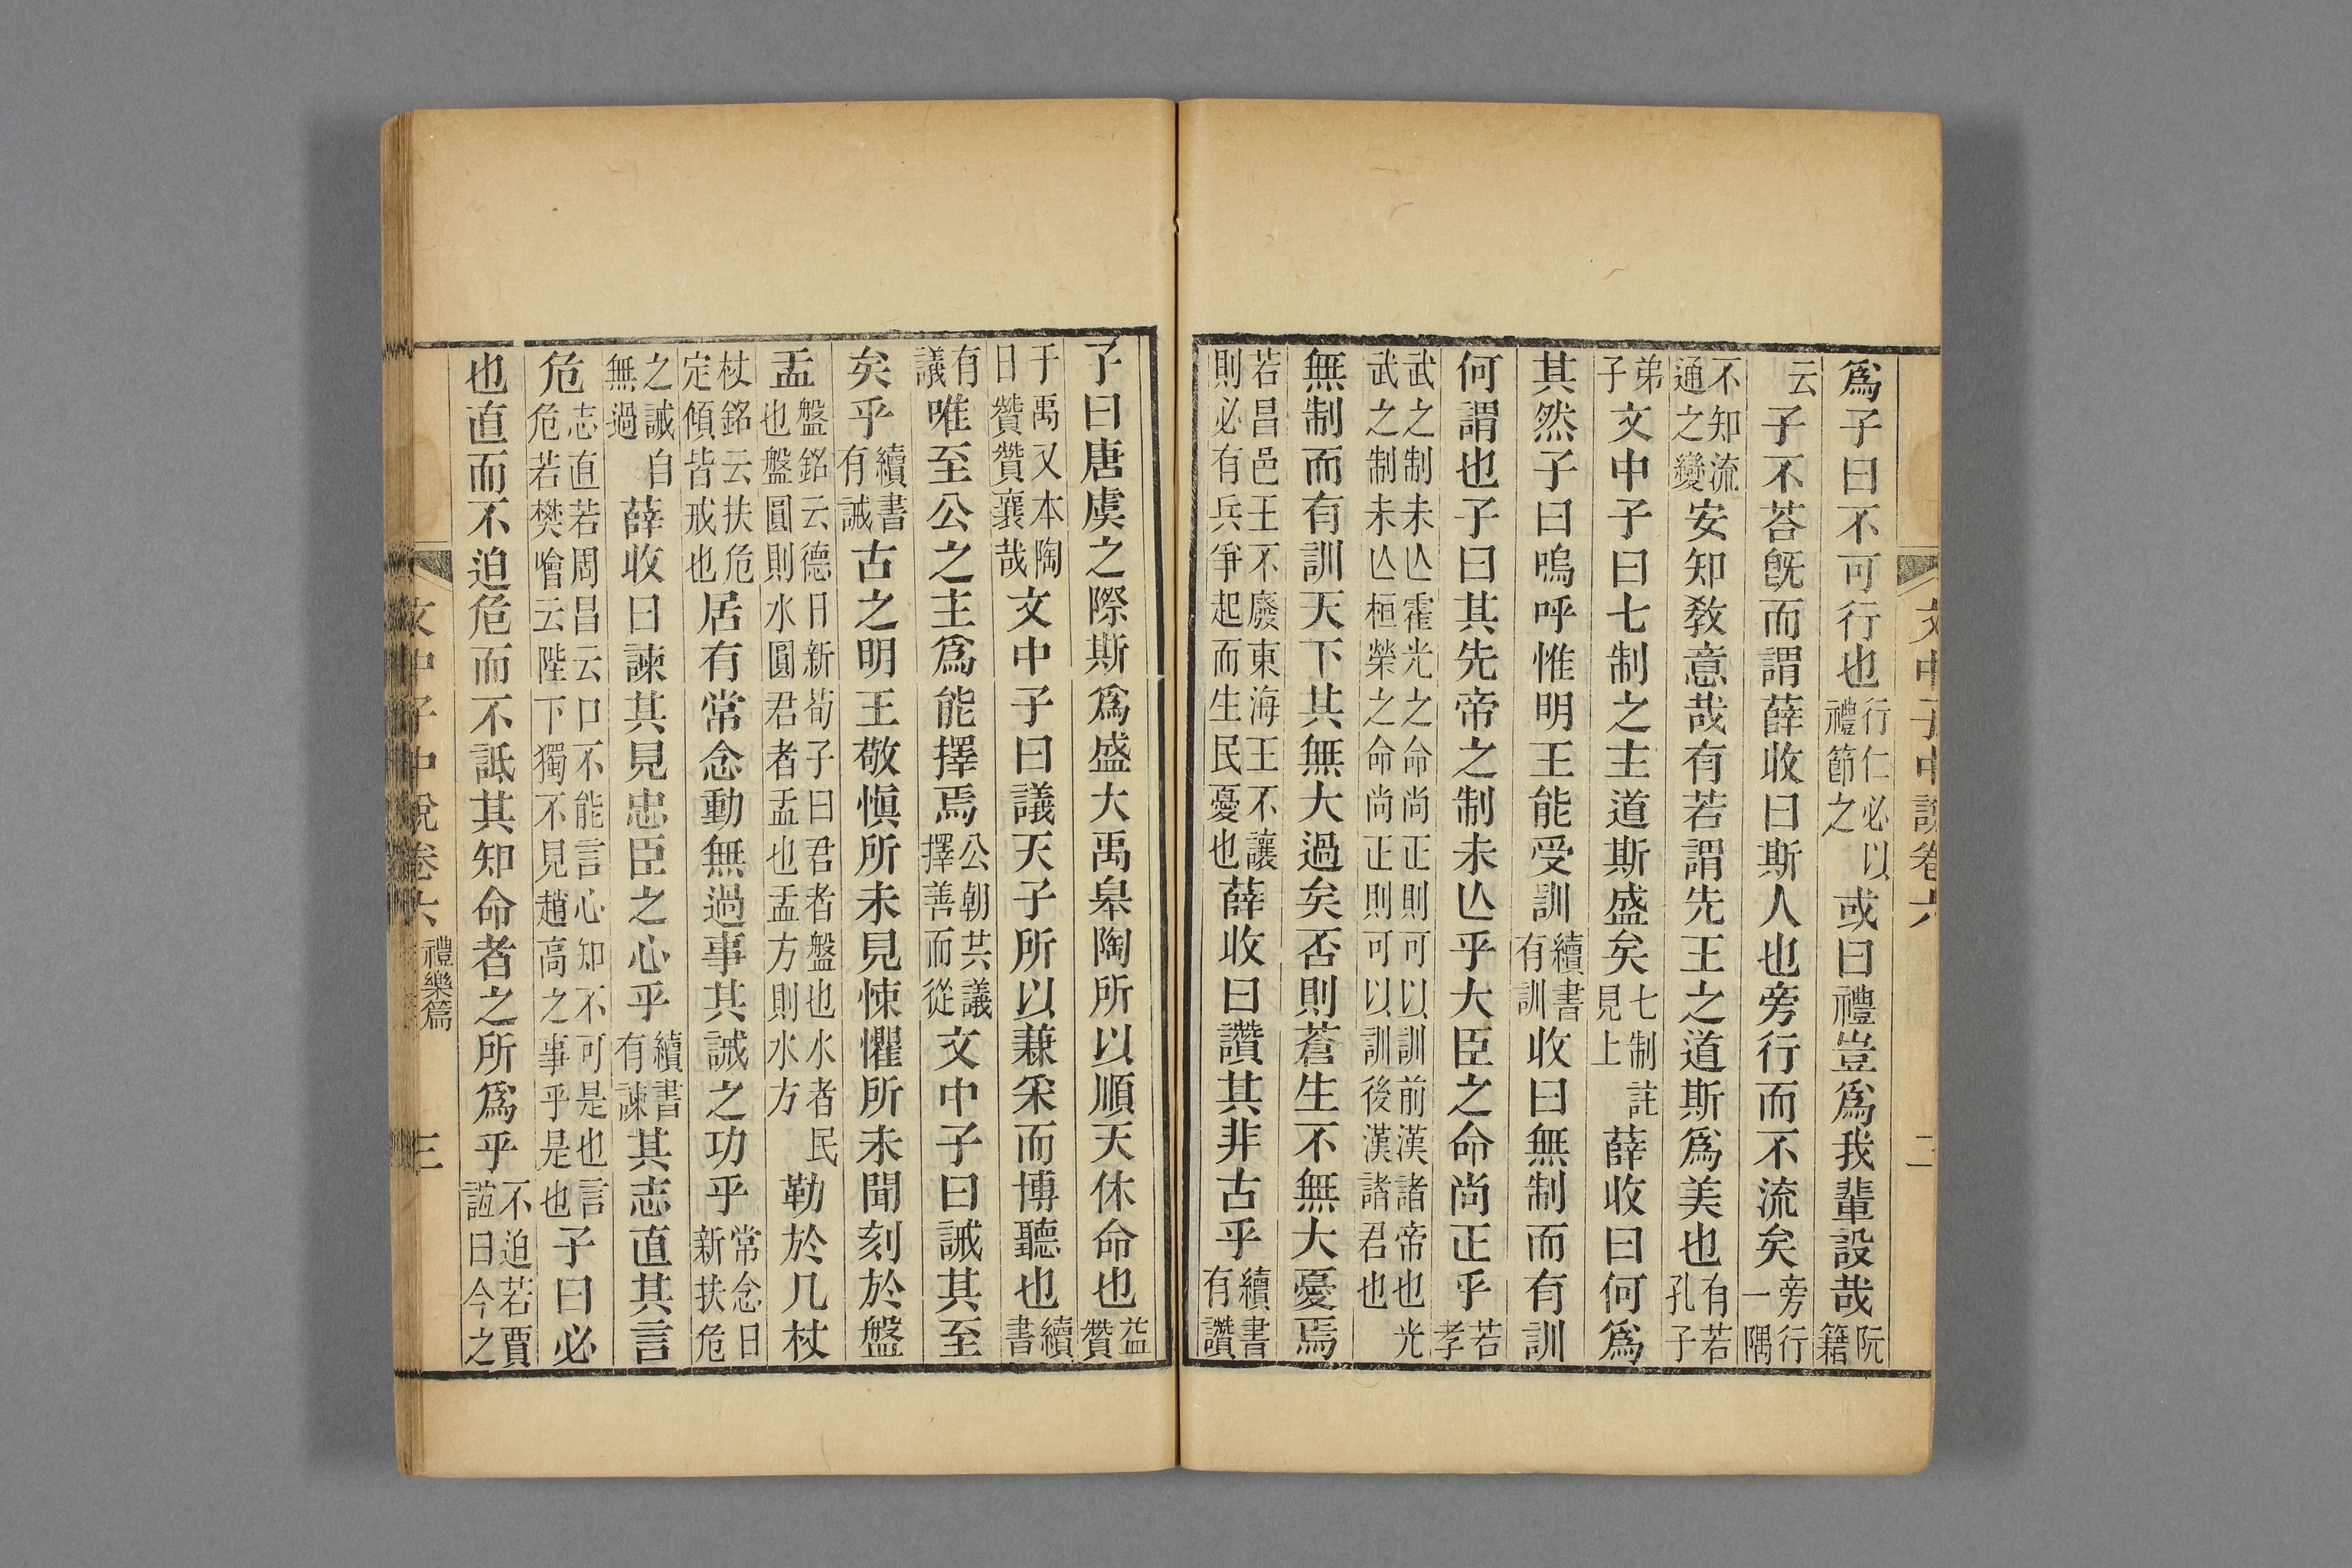 文中子中說卷六
二
爲子曰不可行也行仁必以禮節之或曰禮豈爲我輩設哉阮籍
云子不荅旣而謂薛收曰斯人也旁行而不流矣旁行一隅
不知流通之變安知敎意哉有若謂先王之道斯爲美也有若孔子
弟子文中子曰七制之主道斯盛矣七制註見上薛收曰何爲
其然子曰嗚呼惟明王能受訓續書有訓收曰無制而有訓
何謂也子曰其先帝之制未亾乎大臣之命尚正乎若孝
武之制未亾霍光之命尚正則可以訓前漢諸帝也光武之制未亾桓榮之命尚正則可以訓後漢諸君也
無制而有訓天下其無大過矣否則蒼生不無大憂焉
若昌邑王不廢東海王不讓則必有兵爭起而生民憂也薛收曰讚其非古乎續書有讚
子曰唐虞之際斯爲盛大禹皋陶所以順天休命也益贊
于禹又本陶曰贊贊襄哉文中子曰議天子所以兼采而博聽也續書
有議唯至公之主爲能擇焉公朝共議擇善而從文中子曰誡其至
矣乎續書有誡古之明王敬愼所未見悚懼所未聞刻於盤
盂盤銘云德日新荀子曰君者盤也水者民也盤圓則水圓君者盂也盂方則水方勒於几杖
杖銘云扶危定傾皆戒也居有常念動無過事其誡之功乎常念日新扶危
之誡自無過薛收曰諫其見忠臣之心乎續書有諫其志直其言
危志直若周昌云口不能言心知不可是也言危若樊噲云陛下獨不見趙高之事乎是也子曰必
也直而不迫危而不詆其知命者之所爲乎不迫若賈誼曰今之
文中子中說卷六
禮樂篇
三